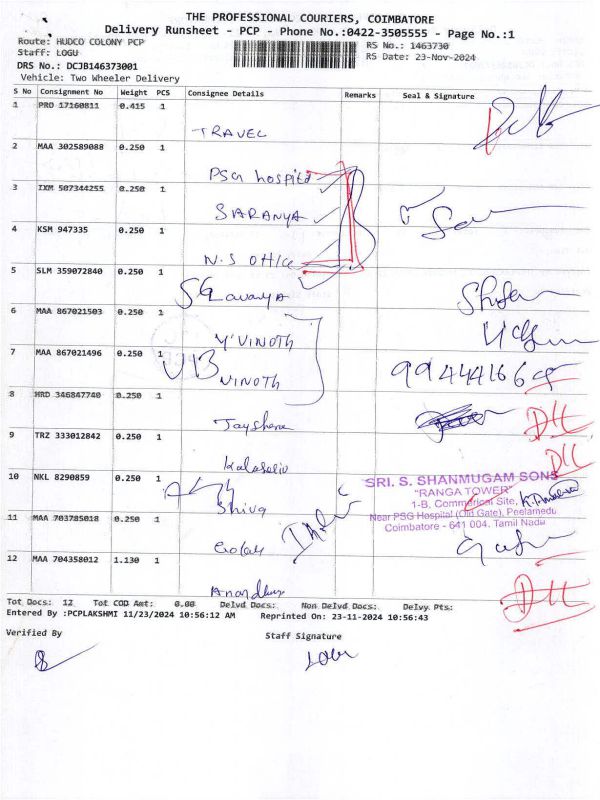 THE PROFESSIONAL COURIERS, COIMBATORE
Delivery Runsheet - PCP - Phone No.:0422-3505555 - Page No.:1
Route: HUDCO COLONY PCP
RS No.: 1463730
Staff: LOGU
RS Date: 23-Nov-2024
DRS No.: DCJB146373001
Vehicle: Two Wheeler Delivery
S No Consignment No Weight PCS Consignee Details Remarks Seal & Signature
1 PRO 17160811 0.415 1
TRAVEL
2 MAA 302589088 0.250 1
PSG hospital
3 IXM 507344255 0.250 1
SARANYA
4 KSM 947335 0.250 1
N.S Office
5 SLM 359072840 0.250 1
Lavanya
6 MAA 867021503 0.250 1
VINOTH
7 MAA 867021496 0.250 1
VINOTH
8 HRD 346847740 0.250 1
DLL
9 TRZ 333012842 0.250 1
DLL
10 NKL 8290859 0.250 1
Shiva
SRI. S. SHANMUGAM SONS
"RANGA TOWER"
1-B, Commercial Site,
Near PSG Hospital (Old Gate), Peelamedu
Coimbatore - 641 004. Tamil Nadu
11 MAA 703785018 0.250 1
12 MAA 704358012 1.130 1
DLL
Tot Docs: 12 Tot COD Amt: 0.00 Delvd Docs: Non Delvd Docs: Delvy Pts:
Entered By :PCPLAKSHMI 11/23/2024 10:56:12 AM Reprinted On: 23-11-2024 10:56:43
Verified By
Staff Signature